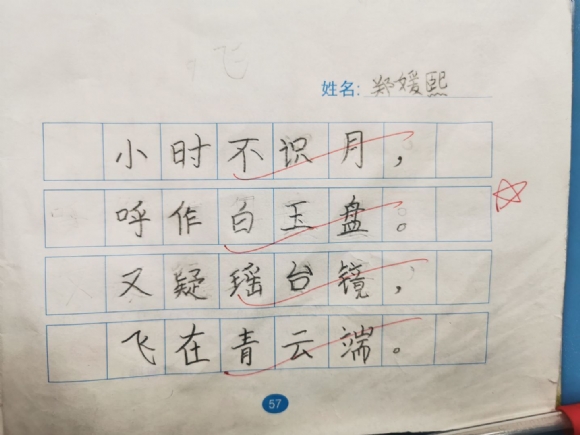 飞
姓名: 郑媛熙
小时不识月，
呼作白玉盘。
又疑瑶台镜，
飞在青云端。
57